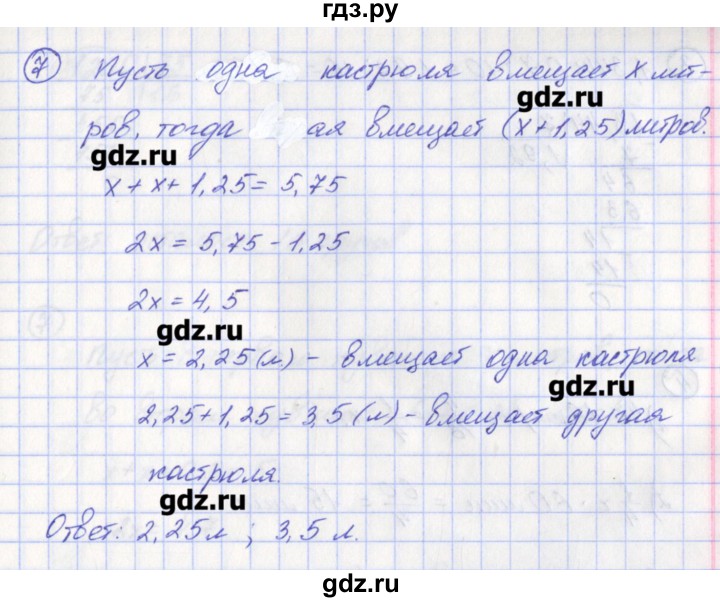 гдз.ру
7 Пусть одна кастрюля вмещает x лит-
gdz.ru
ров, тогда ая вмещает (x+1,25) литров.
gdz.ru
x + x + 1,25 = 5,75
2x = 5,75 - 1,25
2x = 4,5
gdz.ru
x = 2,25 (л) - вмещает одна кастрюля
gdz.ru
2,25 + 1,25 = 3,5 (л) - вмещает другая
кастрюля.
gdz.ru
Ответ: 2,25 л ; 3,5 л.
gdz.ru